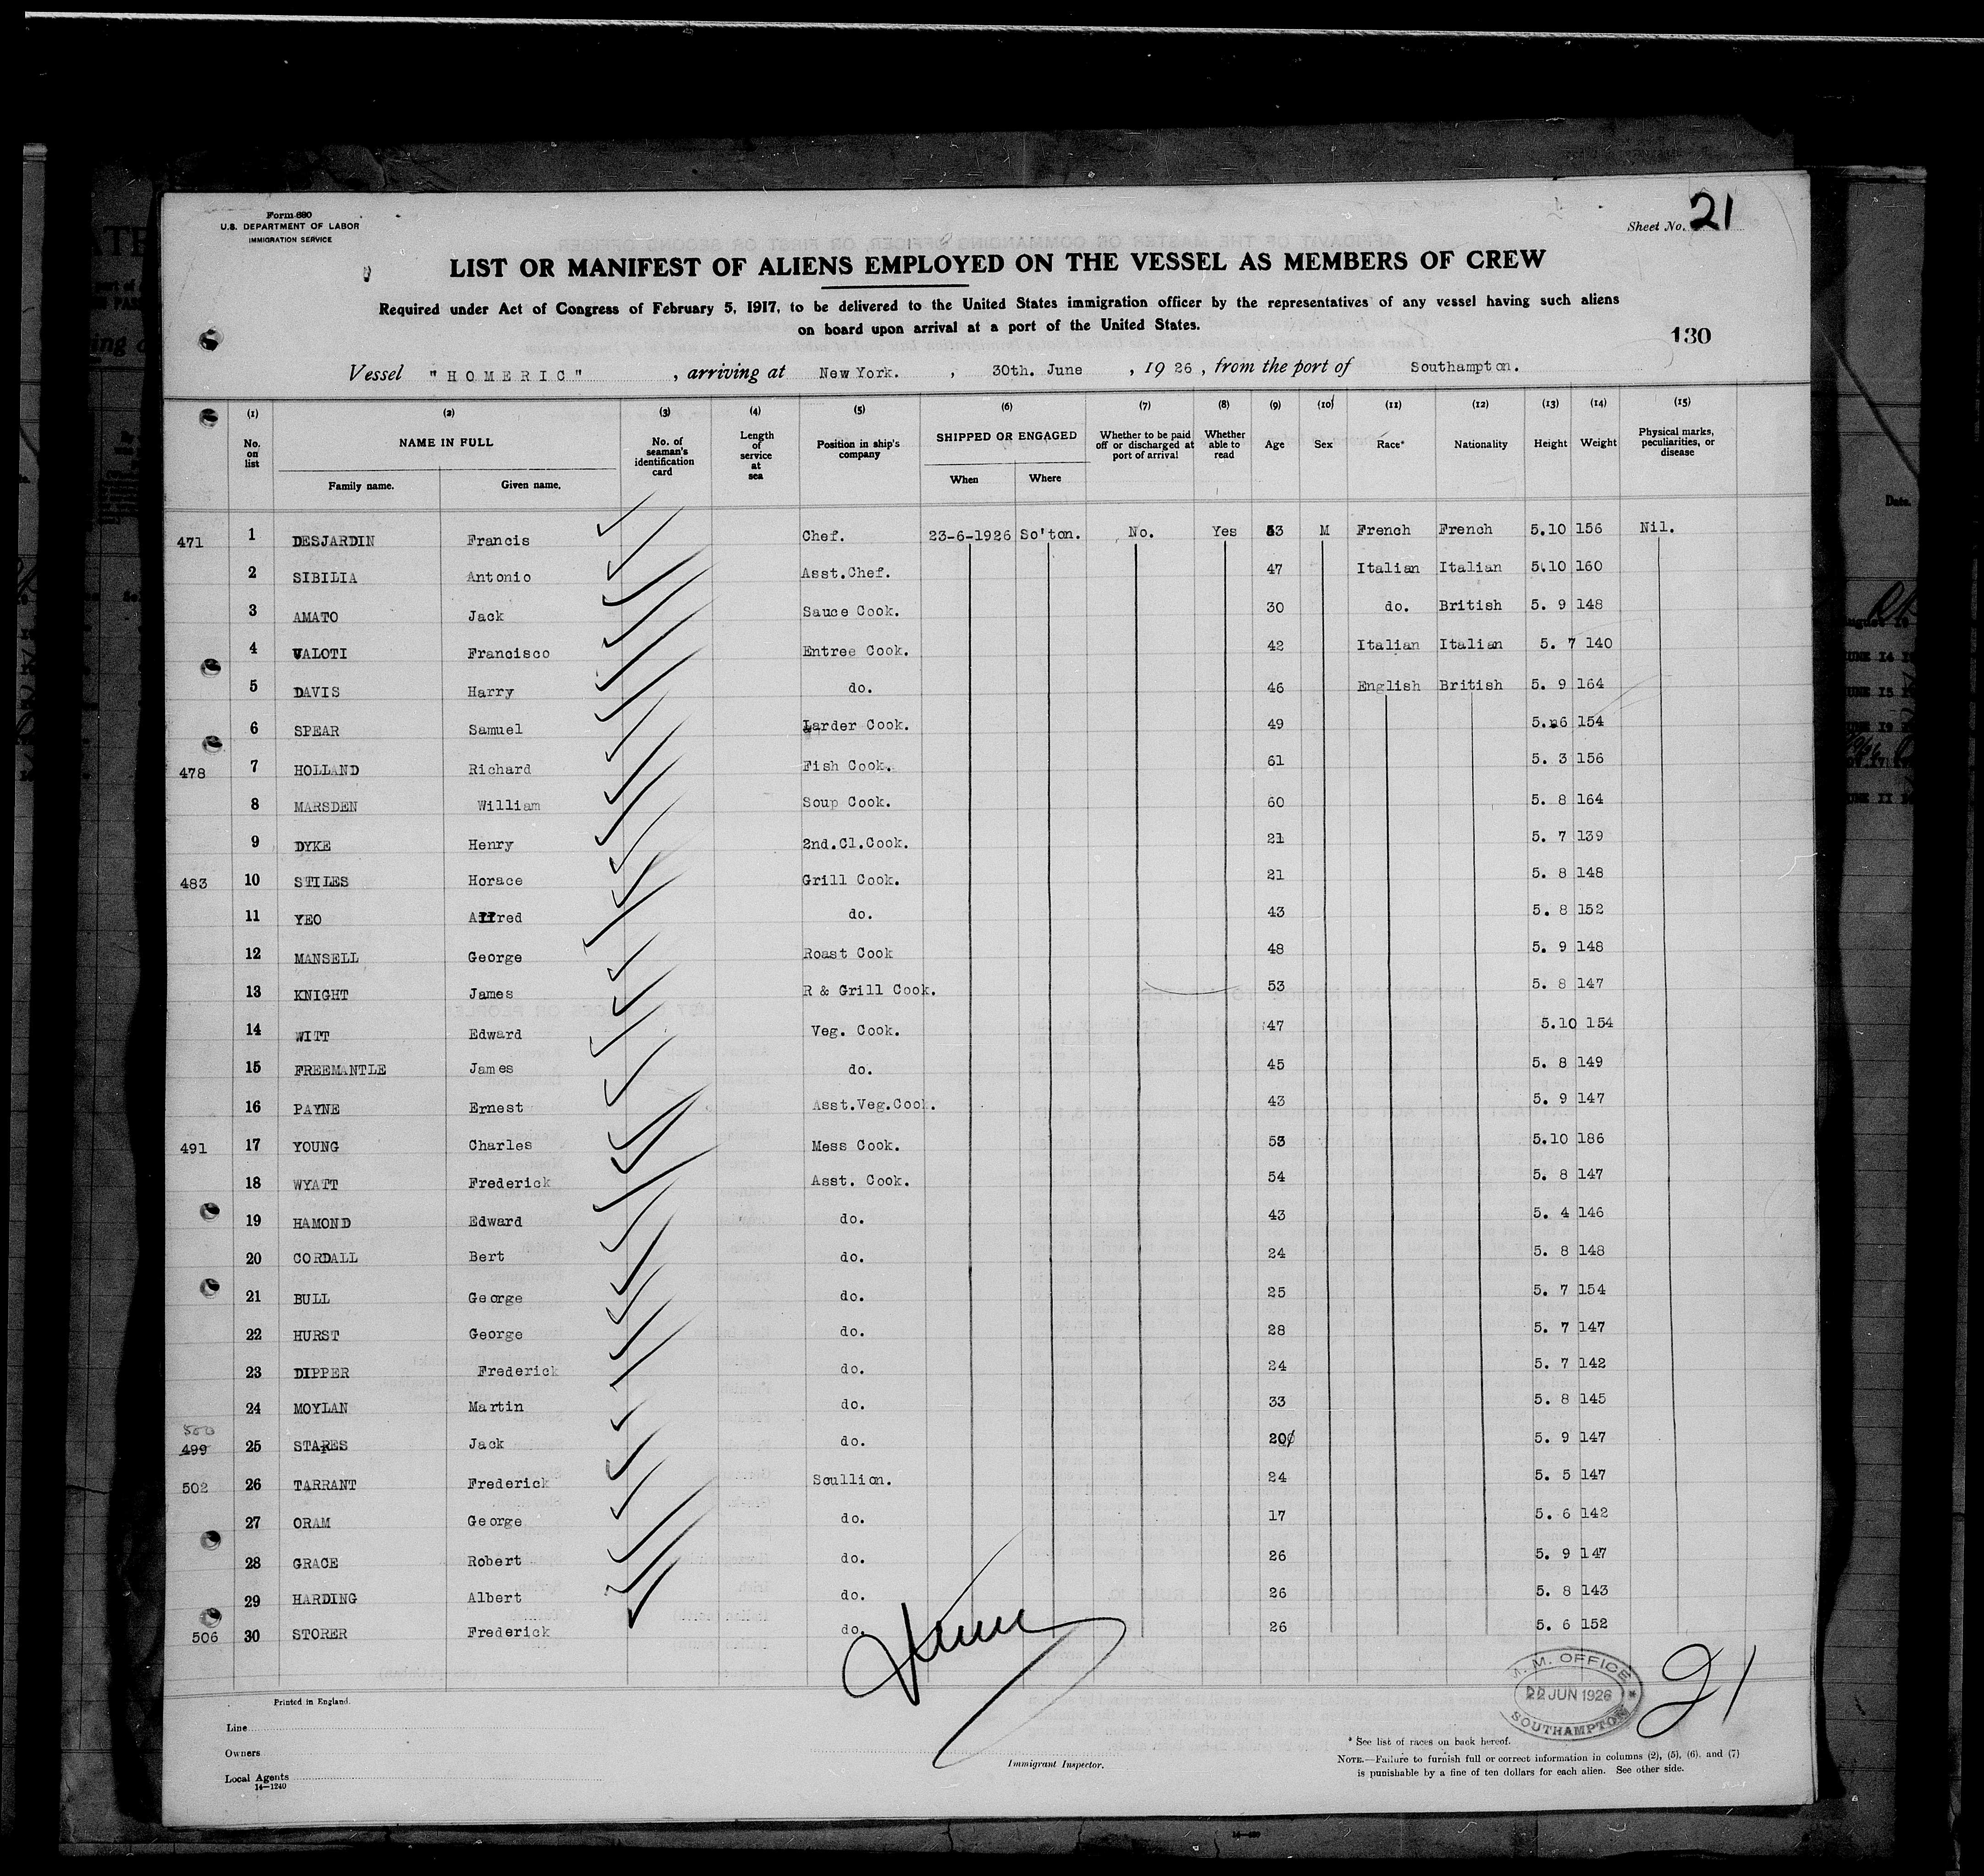 Form 680
U.S. DEPARTMENT OF LABOR
IMMIGRATION SERVICE
Sheet No. 21
LIST OR MANIFEST OF ALIENS EMPLOYED ON THE VESSEL AS MEMBERS OF CREW
Required under Act of Congress of February 5, 1917, to be delivered to the United States immigration officer by the representatives of any vessel having such aliens
on board upon arrival at a port of the United States.
130
Vessel "HOMERIC", arriving at New York., 30th. June, 1926, from the port of Southampton.
(1) (2) (3) (4) (5) (6) (7) (8) (9) (10) (11) (12) (13) (14) (15)
No. on list NAME IN FULL No. of seaman's identification card Length of service at sea Position in ship's company SHIPPED OR ENGAGED Whether to be paid off or discharged at port of arrival Whether able to read Age Sex Race* Nationality Height Weight Physical marks, peculiarities, or disease
Family name. Given name. When Where
471 1 DESJARDIN Francis Chef. 23-6-1926 So'ton. No. Yes 53 M French French 5.10 156 Nil.
2 SIBILIA Antonio Asst.Chef. 47 Italian Italian 5.10 160
3 AMATO Jack Sauce Cook. 30 do. British 5. 9 148
4 VALOTI Francisco Entree Cook. 42 Italian Italian 5. 7 140
5 DAVIS Harry do. 46 English British 5. 9 164
6 SPEAR Samuel Larder Cook. 49 5. 6 154
478 7 HOLLAND Richard Fish Cook. 61 5. 3 156
8 MARSDEN William Soup Cook. 60 5. 8 164
9 DYKE Henry 2nd.Cl.Cook. 21 5. 7 139
483 10 STILES Horace Grill Cook. 21 5. 8 148
11 YEO Alfred do. 43 5. 8 152
12 MANSELL George Roast Cook 48 5. 9 148
13 KNIGHT James R & Grill Cook. 53 5. 8 147
14 WITT Edward Veg. Cook. 47 5.10 154
15 FREEMANTLE James do. 45 5. 8 149
16 PAYNE Ernest Asst.Veg.Cook. 43 5. 9 147
491 17 YOUNG Charles Mess Cook. 53 5.10 186
18 WYATT Frederick Asst. Cook. 54 5. 8 147
19 HAMOND Edward do. 43 5. 4 146
20 CORDALL Bert do. 24 5. 8 148
21 BULL George do. 25 5. 7 154
22 HURST George do. 28 5. 7 147
23 DIPPER Frederick do. 24 5. 7 142
24 MOYLAN Martin do. 33 5. 8 145
500
499 25 STARES Jack do. 20 5. 9 147
502 26 TARRANT Frederick Scullion. 24 5. 5 147
27 ORAM George do. 17 5. 6 142
28 GRACE Robert do. 26 5. 9 147
29 HARDING Albert do. 26 5. 8 143
506 30 STORER Frederick do. 26 5. 6 152
M.M. OFFICE
22 JUN 1926
SOUTHAMPTON
21
Printed in England.
Line
Owners
Local Agents
14-1240
Immigrant Inspector.
* See list of races on back hereof.
NOTE.—Failure to furnish full or correct information in columns (2), (5), (6), and (7)
is punishable by a fine of ten dollars for each alien. See other side.